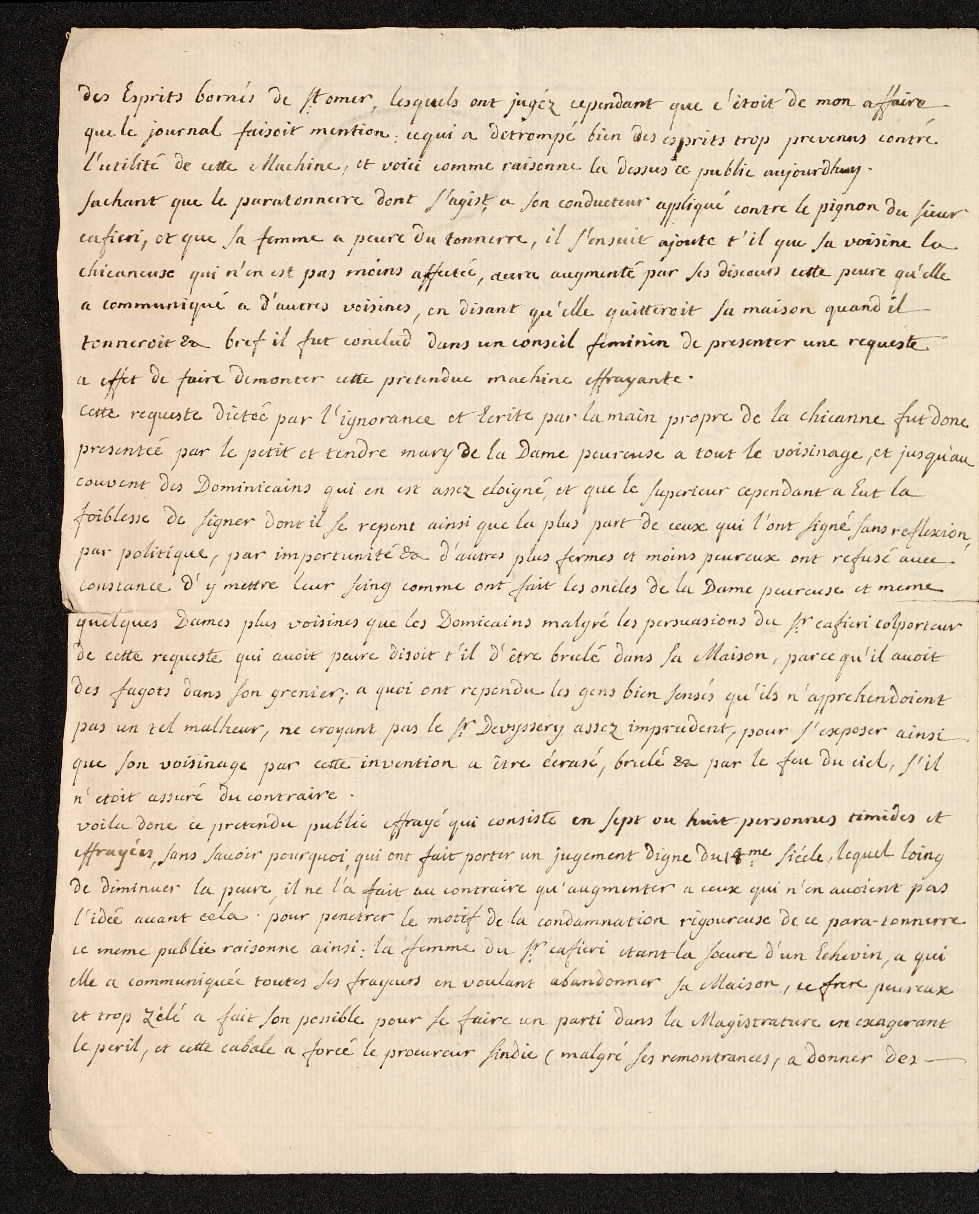 des Esprits bornés de St omer, lesquels ont jugéz cependant que c'étoit de mon affaire
que le journal faisoit mention: cequi a detrompé bien des esprits trop prevenus contre
l'utilité de cette Machine, et voici comme raisonne la dessus ce public aujourdhuy.
sachant que le paratonnerre dont s'agist, a son conducteur appliqué contre le pignon du sieur
cafieri, et que sa femme a peure du tonnerre, il s'ensuit ajoute t'il que sa voisine la
chicaneuse qui n'en est pas moins affectée, aura augmenté par ses discours cette peure qu'elle
a communiqué a d'autres voisines, en disant qu'elle quitteroit sa maison quand il
tonneroit &a bref il fut conclud dans un conseil féminin de presenter une requeste
a effet de faire demonter cette prétendue machine effrayante.
Cette requeste dictéé par l'ignorance et Ecrite par la main propre de la chicanne fut donc
presentéé par le petit et tendre mary de la Dame peureuse a tout le voisinage, et jusqu'au
couvent des Dominicains qui en est assez eloigné, et que le superieur cependant a Eut la
foiblesse de signer dont il se repent ainsi que la plus part de ceux qui l'ont signé sans reflexion,
par politique, par importunité &a d'autres plus fermes et moins peureux ont refusé avec
constance d'y mettre leur seing comme ont fait les oncles de la Dame peureuse et meme
quelques Dames plus voisines que les Domicains malgré les persuasions du Sr cafieri colporteur
de cette requeste qui avoit peure disoit t'il d'être brulé dans sa Maison, parcequ'il avoit
des fagots dans son grenier; a quoi ont rependu les gens bien sensés qu'ils n'apprehendoient
pas un tel malheur, ne croyant pas le Sr Devyssery assez imprudent, pour s'exposer ainsi
que son voisinage par cette invention a être écrasé, brulé &a par le feu du ciel, s'il
n'etoit assuré du contraire.
voila donc ce pretendu public effrayé qui consiste en sept ou huit personnes timides et
effrayées, sans savoir pourquoi, qui ont fait porter un jugement digne du 18me siécle, lequel loing
de diminuer la peure, il ne l'a fait au contraire qu'augmenter a ceux qui n'en avoient pas
l'idéé avant cela. pour penetrer le motif de la condamnation rigoureuse de ce para-tonnerre
ce meme public raisonne ainsi: la femme du Sr cafieri etant la soeure d'un Echevin, a qui
elle a communiquée toutes ses frayeurs en voulant abandonner sa Maison, ce frere peureux
et trop zélé a fait son possible pour se faire un parti dans la Magistrature en exagerant
le peril, et cette cabale a forcé le procureur sindic (malgré ses remontrances, a donner des